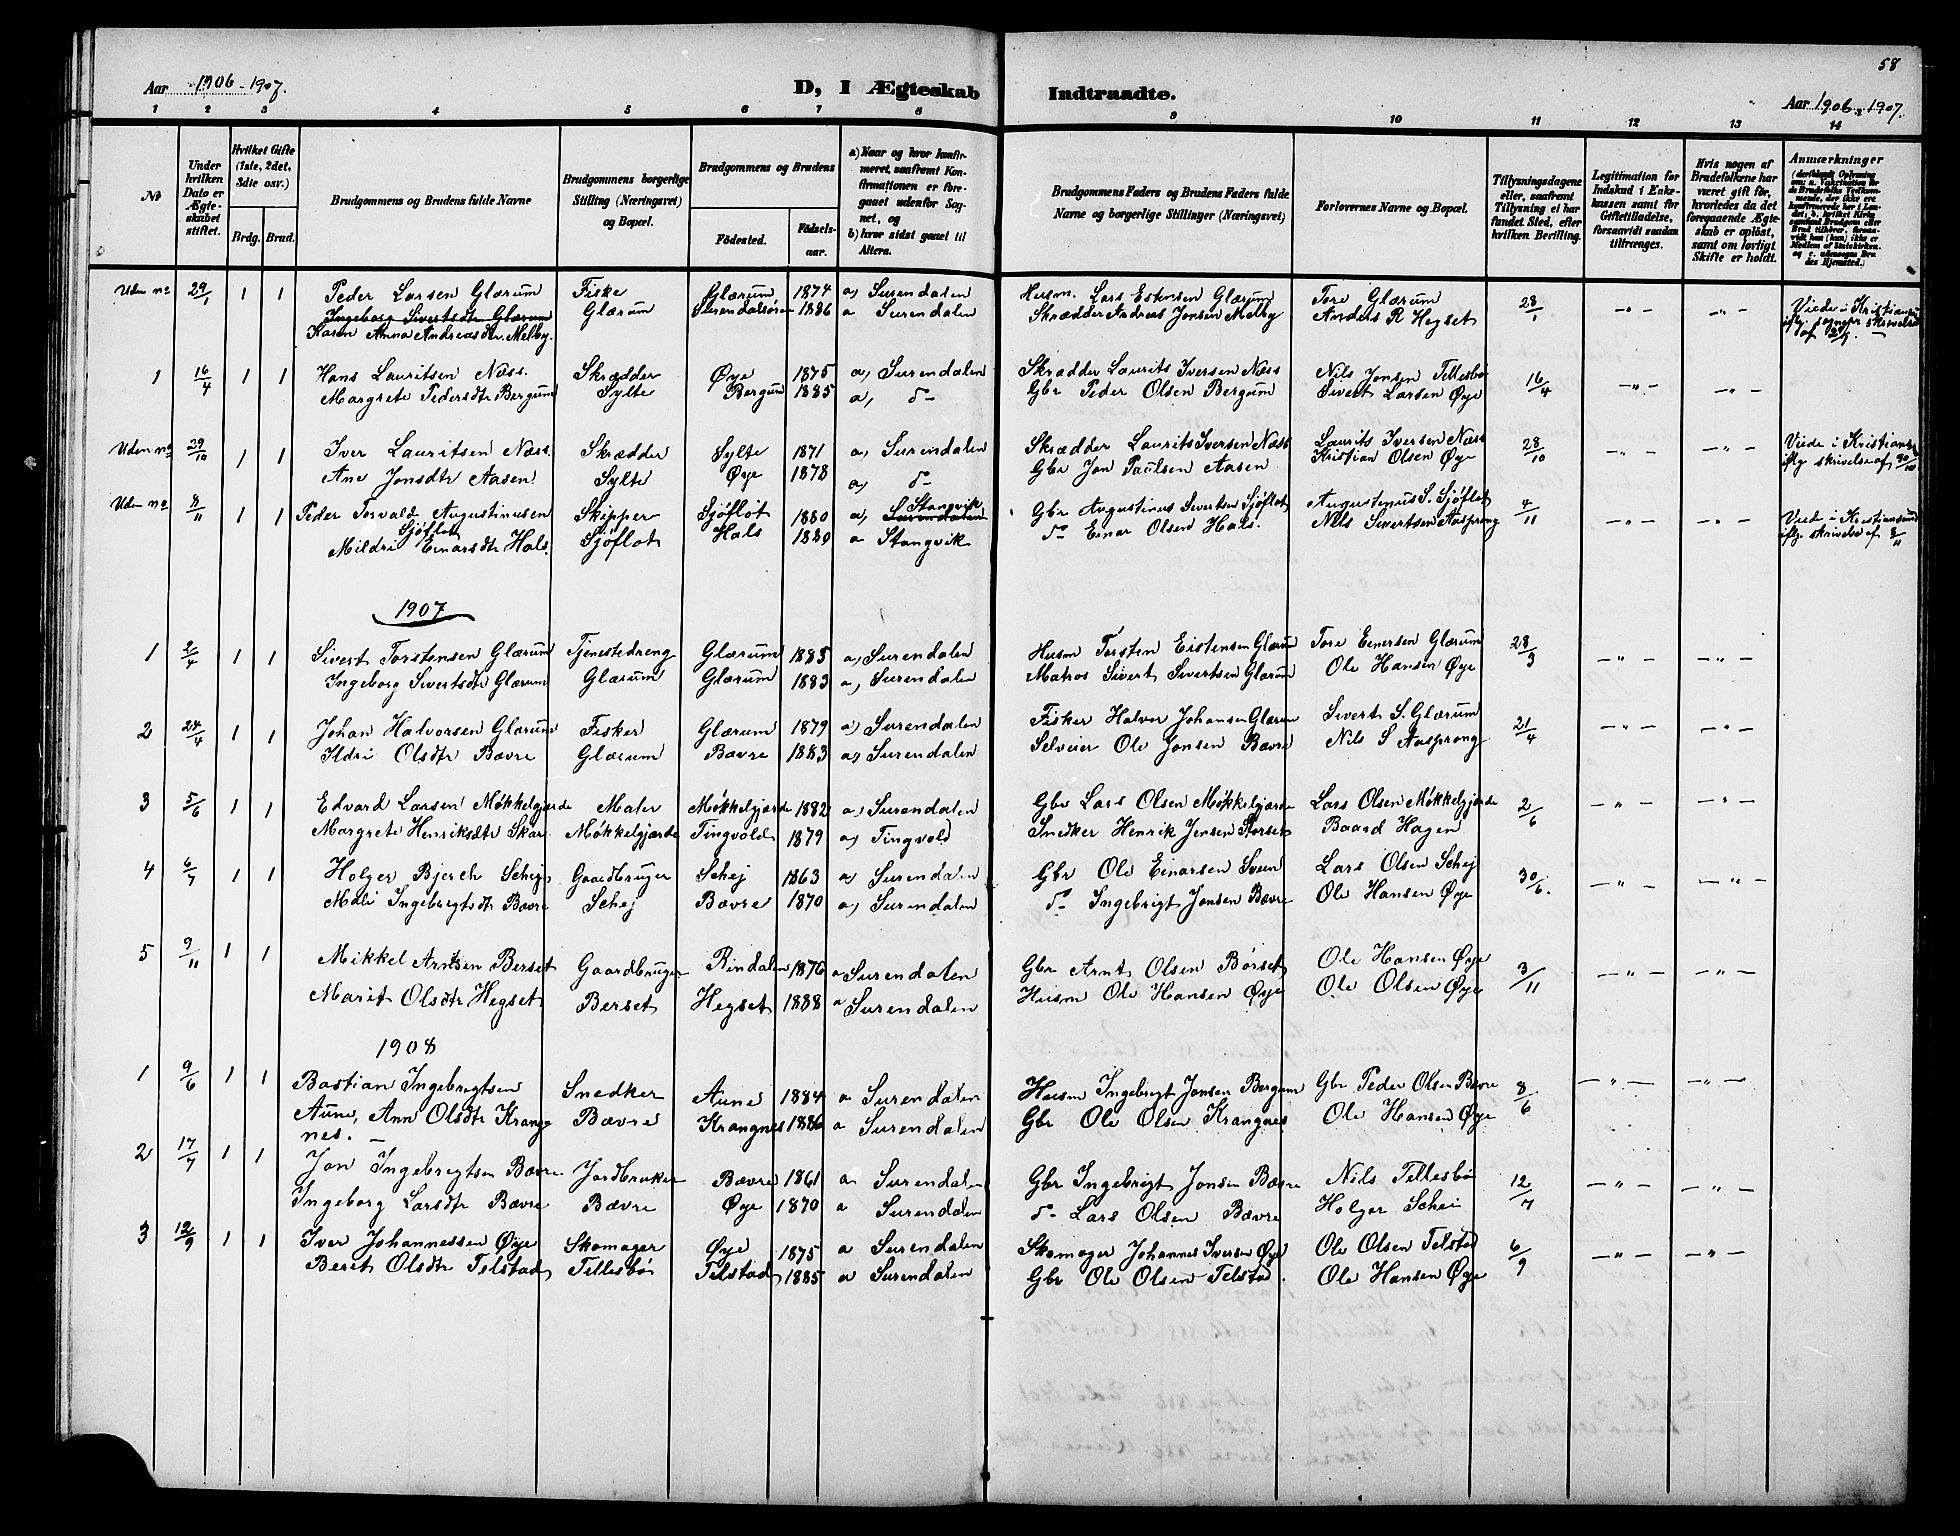 58
Aar 1906-1907.
D, I Ægteskab Indtraadte.
Aar 1906-1907.
1 2 3 4 5 6 7 8 9 10 11 12 13 14
No
Under hvilken Dato er Ægteskabet stiftet.
Hvilket Gifte (1ste, 2det, 3die osv.)
Brdg. Brud.
Brudgommens og Brudens fulde Navne
Brudgommens borgerlige Stilling (Næringsvei) og Bopæl.
Brudgommens og Brudens
Fødested. Fødselsaar.
a) Naar og hvor konfirmeret, saafremt Konfirmationen er foregaaet udenfor Sognet, og
b) hvor sidst gaaet til Alters.
Brudgommens Faders og Brudens Faders fulde Navne og borgerlige Stillinger (Næringsvei)
Forlovernes Navne og Bopæl.
Tillysningsdagene eller, saafremt Tillysning ei har fundet Sted, efter hvilken Bevilling.
Legitimation for Indskud i Enkekassen samt for Giftetilladelse, forsaavidt saadan tiltrænges.
Hvis nogen af Brudefolkene har været gift før, hvorledes da det foregaaende Ægteskab er opløst, samt om lovligt Skifte er holdt.
Anmærkninger
Uden no 29/1 1 1 Peder Larsen Glærum Fiske Glærum 1874 a) Surendalen Husm. Lars Estensen Glærum Tore Glærum 28/1 -"- -"- Viede i Kristiansund
Ingeborg Sivertsdtr Glærum Glærum Surendalsøren 1886 a Surendalen Skrædder Andreas Jonsen Melby Anders R Hegset
Karen Anna Andreasdtr Melby.
1 16/4 1 1 Hans Lauritsen Næss. Skrædder Øye 1875 a) Surendalen Skrædder Laurits Iversen Næss Nils Jonsen Tellesbø 16/4 -"- -"-
Margrete Pedersdtr Bergum Sylte Bergum 1885 a, d- Gbr Peder Olsen Bergum Sivert Larsen Øye
Uden no 29/10 1 1 Iver Lauritsen Næss. Skrædder Sylte 1871 a, Surendalen Skrædder Laurits Iversen Næss Laurits Iversen Næss 28/10 -"- -"- Viede i Kristiansd
Ane Jonsdtr Aasen Sylte Øye 1878 a) d- Gbr Jon Paulsen Aasen Kristian Olsen Øye iflg skrivelse af 30/10
Uden no 8/11 1 1 Peder Torvald Augustinusen Skipper Sjøflot 1880 a, Stangvik Surendalen Gbr Augustinus Sivertsen Sjøflot Augustinus S. Sjøflot 4/11 -"- -"- Viede i Kristiansund
Sjøflot
Mildri Einarsdtr Hals. Sjøflot Hals 1880 a Stangvik d- Einar Olsen Hals. Nils Sivertsen Aasprong iflg. skrivelse af 8/11
1907
1 2/4 1 1 Sivert Torstensen Glærum Tjenestedreng Glærum 1885 a) Surendalen Husm Torsten Eistensen Glærum Tore Einersen Glærum 28/3 -"- -"-
Ingeborg Sivertsdtr Glærum Glærum Glærum 1883 a) Surendalen Matros Sivert Sivertsen Glærum Ole Hansen Øye
2 24/4 1 1 Johan Halvorsen Glærum Fisker Glærum 1879 a) Surendalen Fisker Halvor Johansen Glærum Sivert S. Glærum 21/4 -"- -"-
Ildri Olsdtr Bævre Glærum Bævre 1883 a) Surendalen Selveier Ole Jonsen Bævre Nils S Aasprong
3 5/6 1 1 Edvard Larsen Møkkelgjerde Maler Møkkelgjærde 1882 a) Surendalen Gbr Lars Olsen Møkkelgjærde Lars Olsen Møkkelgjørde 2/6 -"- -"-
Margrete Henriksdtr Skar Møkkelgjærde Tingvold 1879 a) Tingvold Snedker Henrik Jensen Storset Baard Hagen
4 6/7 1 1 Holger Bjerch Schej Gaardbruger Schej 1863 a) Surendalen Gbr Ole Einarsen Svein Lars Olsen Schej 30/6. -"- -"-
Mali Ingebrigtsdtr Bævre Schej Bævre 1870 a) Surendalen d- Ingebrigt Jonsen Bævre Ole Hansen Øye
5 9/11 1 1 Mikkel Arntsen Berset Gaardbruger Rindalen 1876 a Surendalen Gbr Arnt Olsen Børset Ole Hansen Øye 3/11 -"- -"-
Marit Olsdtr Hegset Berset Hegset 1888 a Surendalen Husm Ole Hansen Øye Ole Olsen Øye
1908
1 9/6 1 1 Bastian Ingebrigtsen Snedker Aune 1884 a Surendalen Husm Ingebrigt Jonsen Bergum Gbr Peder Olsen Bævre 8/6 -"- -"-
Aune, Ann Olsdtr Krangnes. Bævre Krangnes 1886 a Surendalen Gbr Ole Olsen Krangnes Ole Hansen Øye
2 17/7 1 1 Jon Ingebrigtsen Bævre Jordbruker Bævre 1861 a Surendalen Gbr Ingebrigt Jonsen Bævre Nils Tellesbø 12/7 -"- -"-
Ingeborg Larsdtr Bævre Bævre Øye 1870 a Surendalen d- Lars Olsen Bævre Holger Schei
3 12/9 1 1 Iver Johannessen Øye Skomager Øye 1875 a Surendalen Skomager Johannes Iversen Øye Ole Olsen Telstad 6/9 -"- -"-
Beret Olsdtr Telstad Tellesbø Telstad 1885 a Surendalen Gbr Ole Olsen Telstad. Ole Hansen Øye